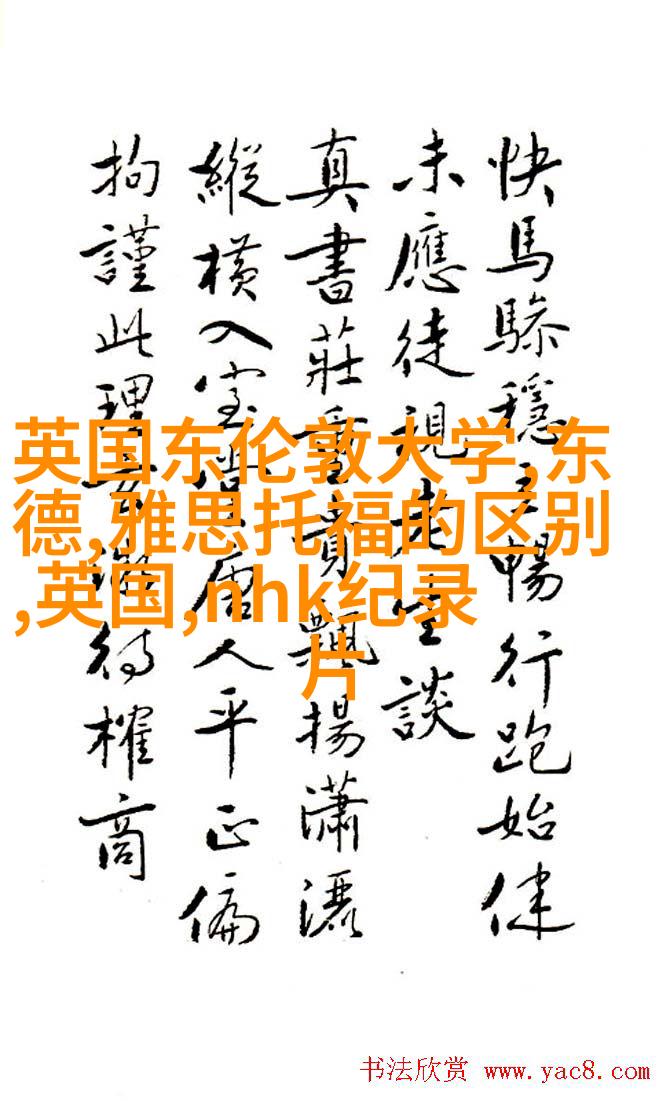 快馬驂穩暢行跑始
未應徒視談
真書莊重貴飄揚瀟灑
縱橫入室唐人平正偏
拘謹此理待榷商
英国东伦敦大学,东
德,雅思托福的区别
,英国,nhk纪录
片
书法欣赏 www.yac8.com